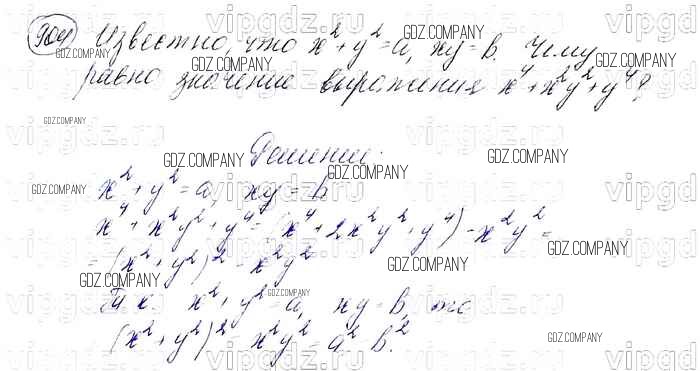 904 Известно, что x²+y²=a, xy=b. Чему
равно значение выражения x⁴+x²y²+y⁴?
Решение.
x²+y²=a, xy=b
x⁴+x²y²+y⁴=(x⁴+2x²y²+y⁴)-x²y²=
=(x²+y²)²-x²y²
Т.к. x²+y²=a, xy=b, то
(x²+y²)² x²y²=a² b.²